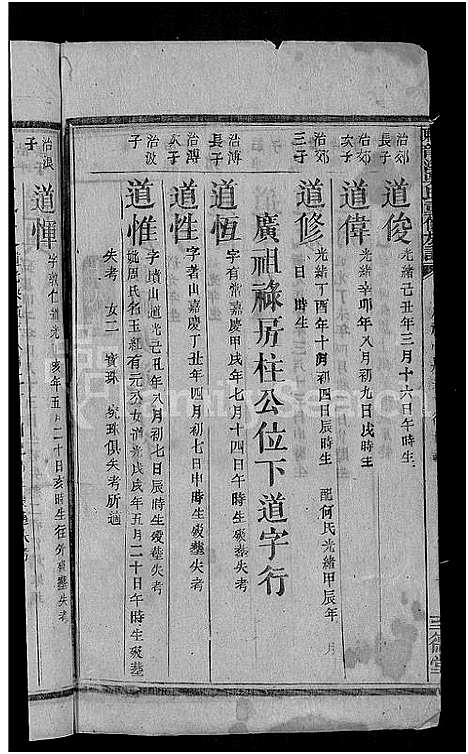 治郊長子 道俊 光緒己丑年三月十六日午時生
治郊次子 道偉 光緒辛卯年八月初九日戌時生
治郊三子 道修 光緒丁酉年十月初四日辰時生 配何氏光緒甲辰年 月 日 時生
廣祖祿房柱公位下道字行
治溥長子 道恆 字有常嘉慶甲戌年七月十四日午時生歿塟失考
治溥次子 道性 字著山嘉慶丁丑年四月初七日申時生歿塟失考
治汲子 道惟 字墳山道光己亥年八月初七日辰時生歿塟失考
周氏名玉 有元公女 光戊戌年五月二十日午時生歿塟失考 女二 寶珠 珠俱失考所適
子 道惲 字敦仁道光 亥年五月二十日亥時生 歿塟失考
三 堂
FamilySearch